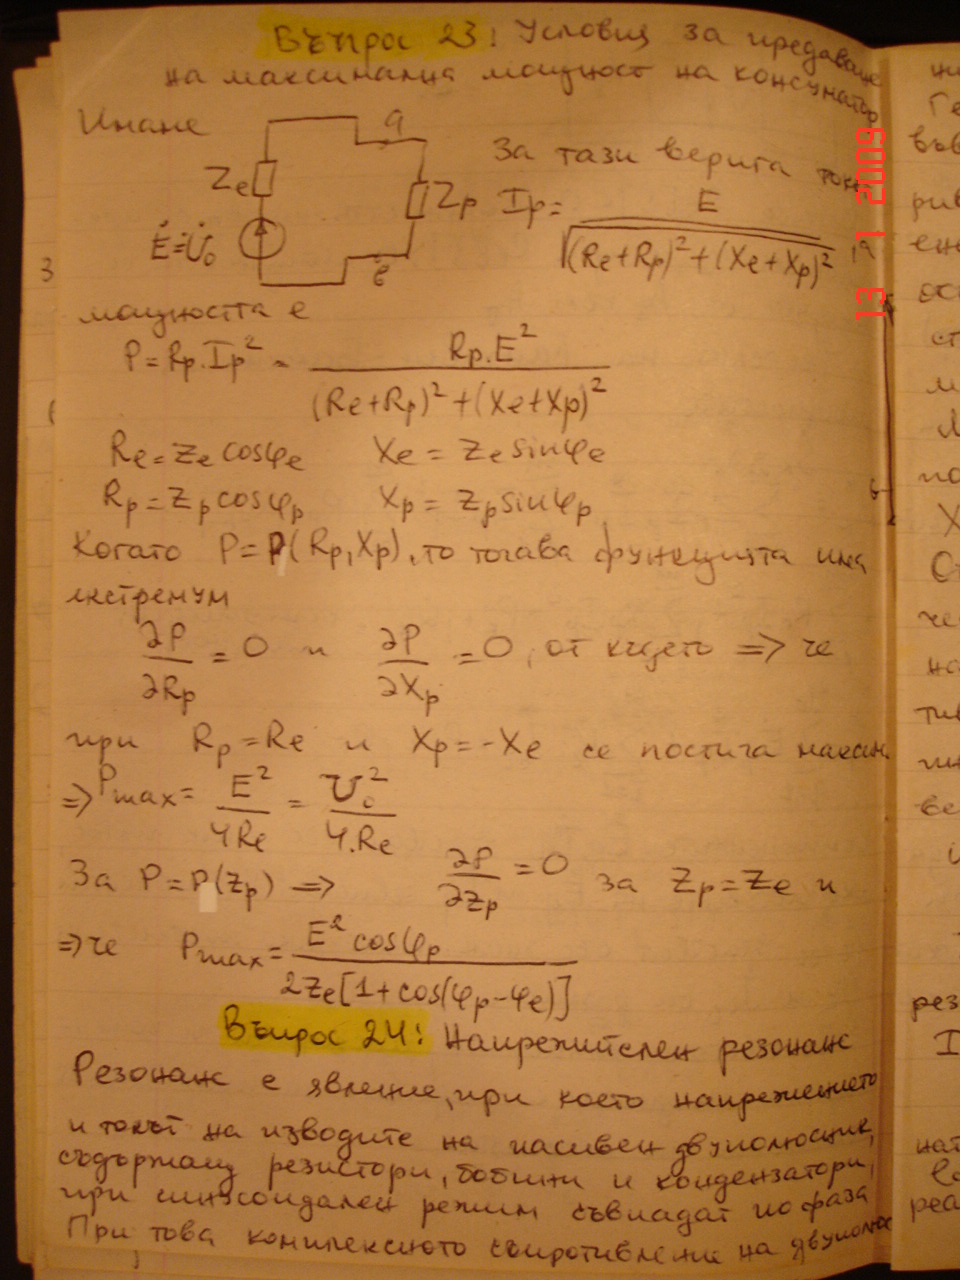 Въпрос 23: Условия за предаване
на максимална мощност на консуматор
Имаме
a
Ze
Zp
Ė=U̇₀
в
За тази верига токът
Ip= E / √((Re+Rp)²+(Xe+Xp)²), а
мощността е
P=Rp.Ip² = Rp.E² / ((Re+Rp)²+(Xe+Xp)²)
Re=Ze cosφe Xe = Ze sinφe
Rp=Zp cosφp Xp = Zp sinφp
Когато P=P(Rp,Xp), то тогава функцията има
екстремум
∂P/∂Rp = 0 и ∂P/∂Xp = 0, от където => че
при Rp=Re и Xp=-Xe се постига максим.
=> Pmax= E²/4Re = U₀²/4.Re
За P=P(Zp) => ∂P/∂Zp = 0 за Zp=Ze и
=> че Pmax= E² cosφp / 2Ze[1+cos(φp-φe)]
Въпрос 24: Напрежителен резонанс
Резонанс е явление, при което напрежението
и токът на изводите на пасивен двуполюсник,
съдържащ резистори, бобини и кондензатори,
при синусоидален режим съвпадат по фаза
При това комплексното съпротивление на двуполюс
13 1 2009